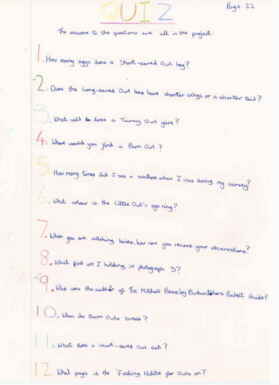 Page 22
QUIZ
The answers to the questions are all in the project.
1. How many eggs does a Short-eared Owl lay?
2. Does the Long-eared Owl have shorter wings or a shorter tail?
3. What call does a Tawny Owl give?
4. Where would you find a Barn Owl?
5. How many times did I see a when I was doing my survey?
6. What colour is the Little Owl's eye ring?
7. When you are watching birds, how can you record your observations?
8. What am I holding in photograph 5?
9. Who was the author of The Mitchell Beazley Birdwatchers Pocket Guide?
10. When do Barn Owls breed?
11. What does a short-eared owl eat?
12. What page is the Feeding Habits for Owls on?